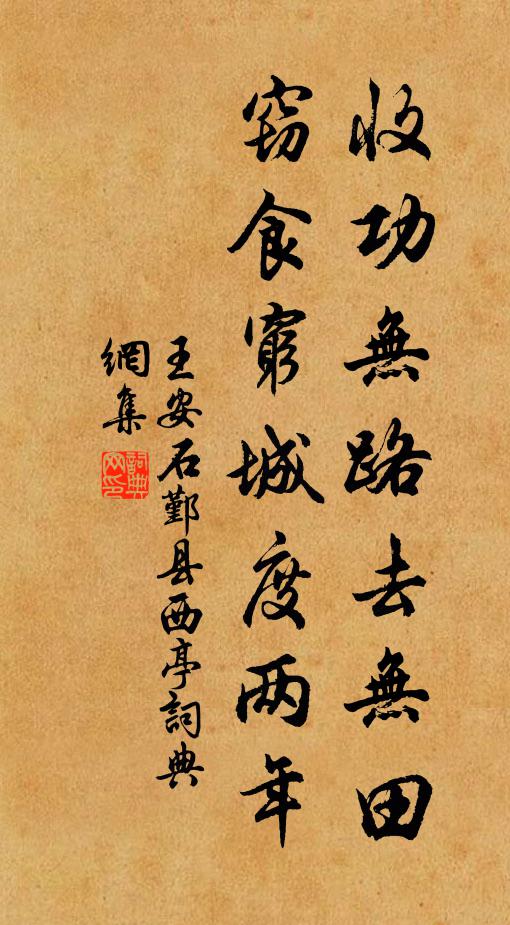 收功無路去無田
竊食窮城度兩年
王安石鄞县西亭詞典
網集
詞典
网印